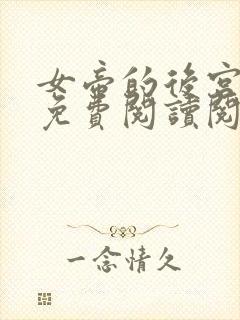 女帝的後宮
免費閱讀閱
一念情久